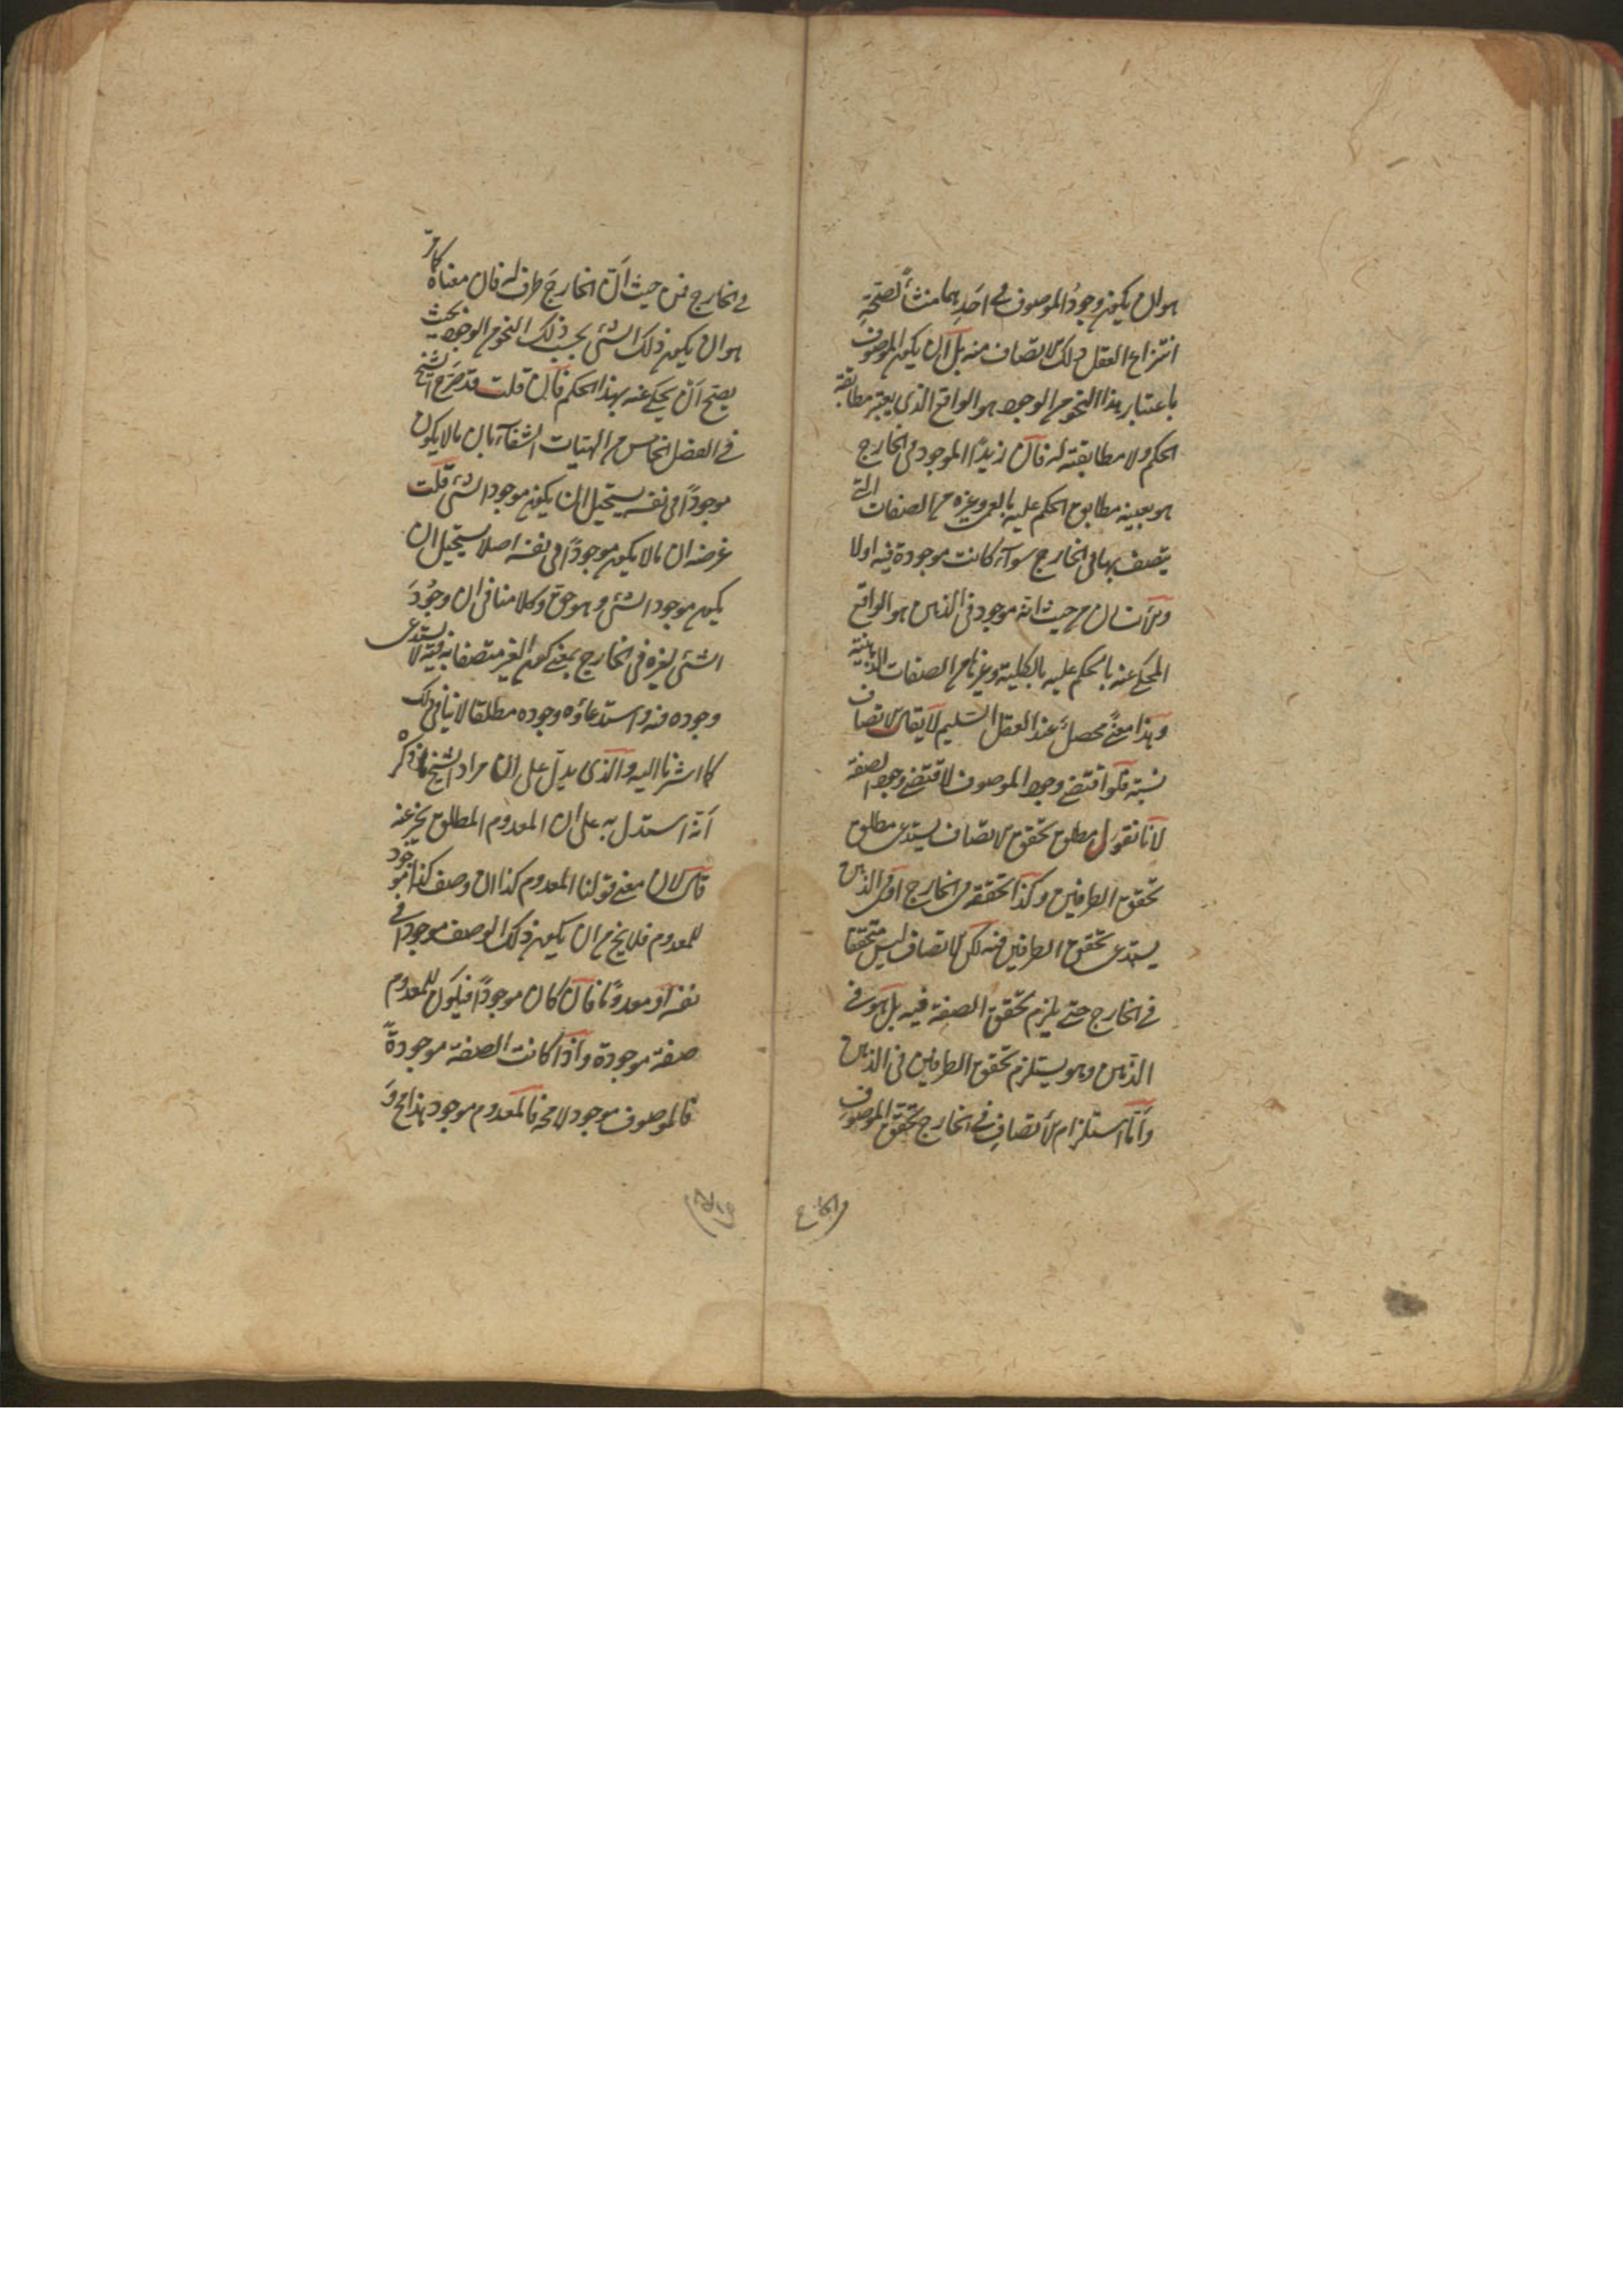 هو ان يكون وجودُ الموصوف فى احَدِهما منشأً لصحّةِ
انتزاع العقل ذلك الاتصاف منه بل ان يكون الموصوف
باعتبار هذا النحو من الوجود هو الواقع الذى يعتبر مطابقة
الحكم ولا مطابقته له فان زيداً الموجود فى الخارج
هو بعينه مطابق الحكم عليه بالعمى وغيره من الصفات التى
يتصف بها فى الخارج سوآء كانت موجودة فيه اولا
والانسان من حيث انه موجود فى الذهن هو الواقع
المحكى عنه بالحكم عليه بالكلية وغيرها من الصفات الذهنية
وهذا معنىً محصلٌ عند العقل السليم لا يقال الاتصاف
نسبة فلو اقتضى وجود الموصوف لاقتضى وجود الصفة
لانا نقول مطلق تحقق الاتصاف يستدعى مطلق
تحقق الطرفين وكذا تحققه فى الخارج او فى الذهن
يستدعى تحقق الطرفين فيه لكن الاتصاف ليس متحققا
فى الخارج حتى يلزم تحقق الصفة فيه بل هو فى
الذهن وهو يستلزم تحقق الطرفين فى الذهن
وأمّا استلزام الأتصاف فى الخارج تحقق الموصوف
فى الخارج فمن حيث اَنّ الخارج ظرف له فان معناه كما مرّ
هو ان يكون ذلك الشئ بحسب ذلك النحو من الوجود بحيث
يصح اَن يحكى عنه بهذا الحكم فان قلت قد صرّح الشيخ
فى الفصل الخامس من الهيات الشفآء بان ما لا يكون
موجوداً فى نفسه يستحيل ان يكون موجود الشئ قلت
غرضه ان ما لا يكون موجوداً فى نفسه اصلا يستحيل ان
يكون موجود الشئ وهو حق وكلامنا فى ان وجُودَ
الشئ لغيره فى الخارج بمعنى كون الغير متصفا به فيه لا يستدعى
وجوده فيه واستدعاؤه وجوده مطلقا لا ينافى ذلك
كما اشرنا اليه والذى يدلّ على ان مراد الشيخ ما ذكره
اَنّه استدل به على ان المعدوم المطلق يخبر عنه
قال لان معنى قولنا المعدوم كذا ان وصف كذا موجود
للمعدوم فلا يخ من ان يكون ذلك الوصف موجودا فى
نفسه او معدوماً فان كان موجوداً فيكون للمعدوم
صفة موجودة واذا كانت الصفة موجودةً
فالموصوف موجود لا محة فالمعدوم موجود هذا مح وَ